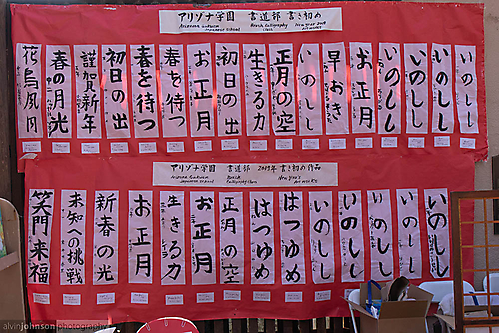 アリゾナ学園 書道部 書き初め
Arizona Gakuen
Japanese School
Brush Calligraphy
Class
New year 2019
花鳥風月
春の月光
謹賀新年
初日の出
春を待つ
春を待つ
お正月
初日の出
生きる力
正月の空
いのしし
早おき
お正月
いのしし
いのしし
いのしし
いのしし
アリゾナ学園 書道部 2019年 書き初め作品
Arizona Gakuen
Japanese School
Brush
Calligraphy Class
New Year's
Art Works
笑門来福
未知への挑戦
新春の光
お正月
生きる力
お正月
正月の空
はつゆめ
はつゆめ
いのしし
いのしし
いのしし
いのしし
いのしし
alvinjohnsonphotography